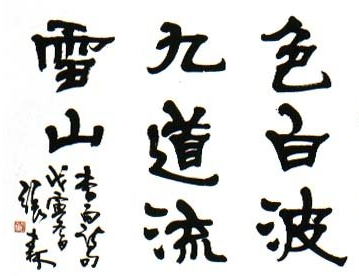 色白波
九道流
雪山
李白诗句
戊寅
張森